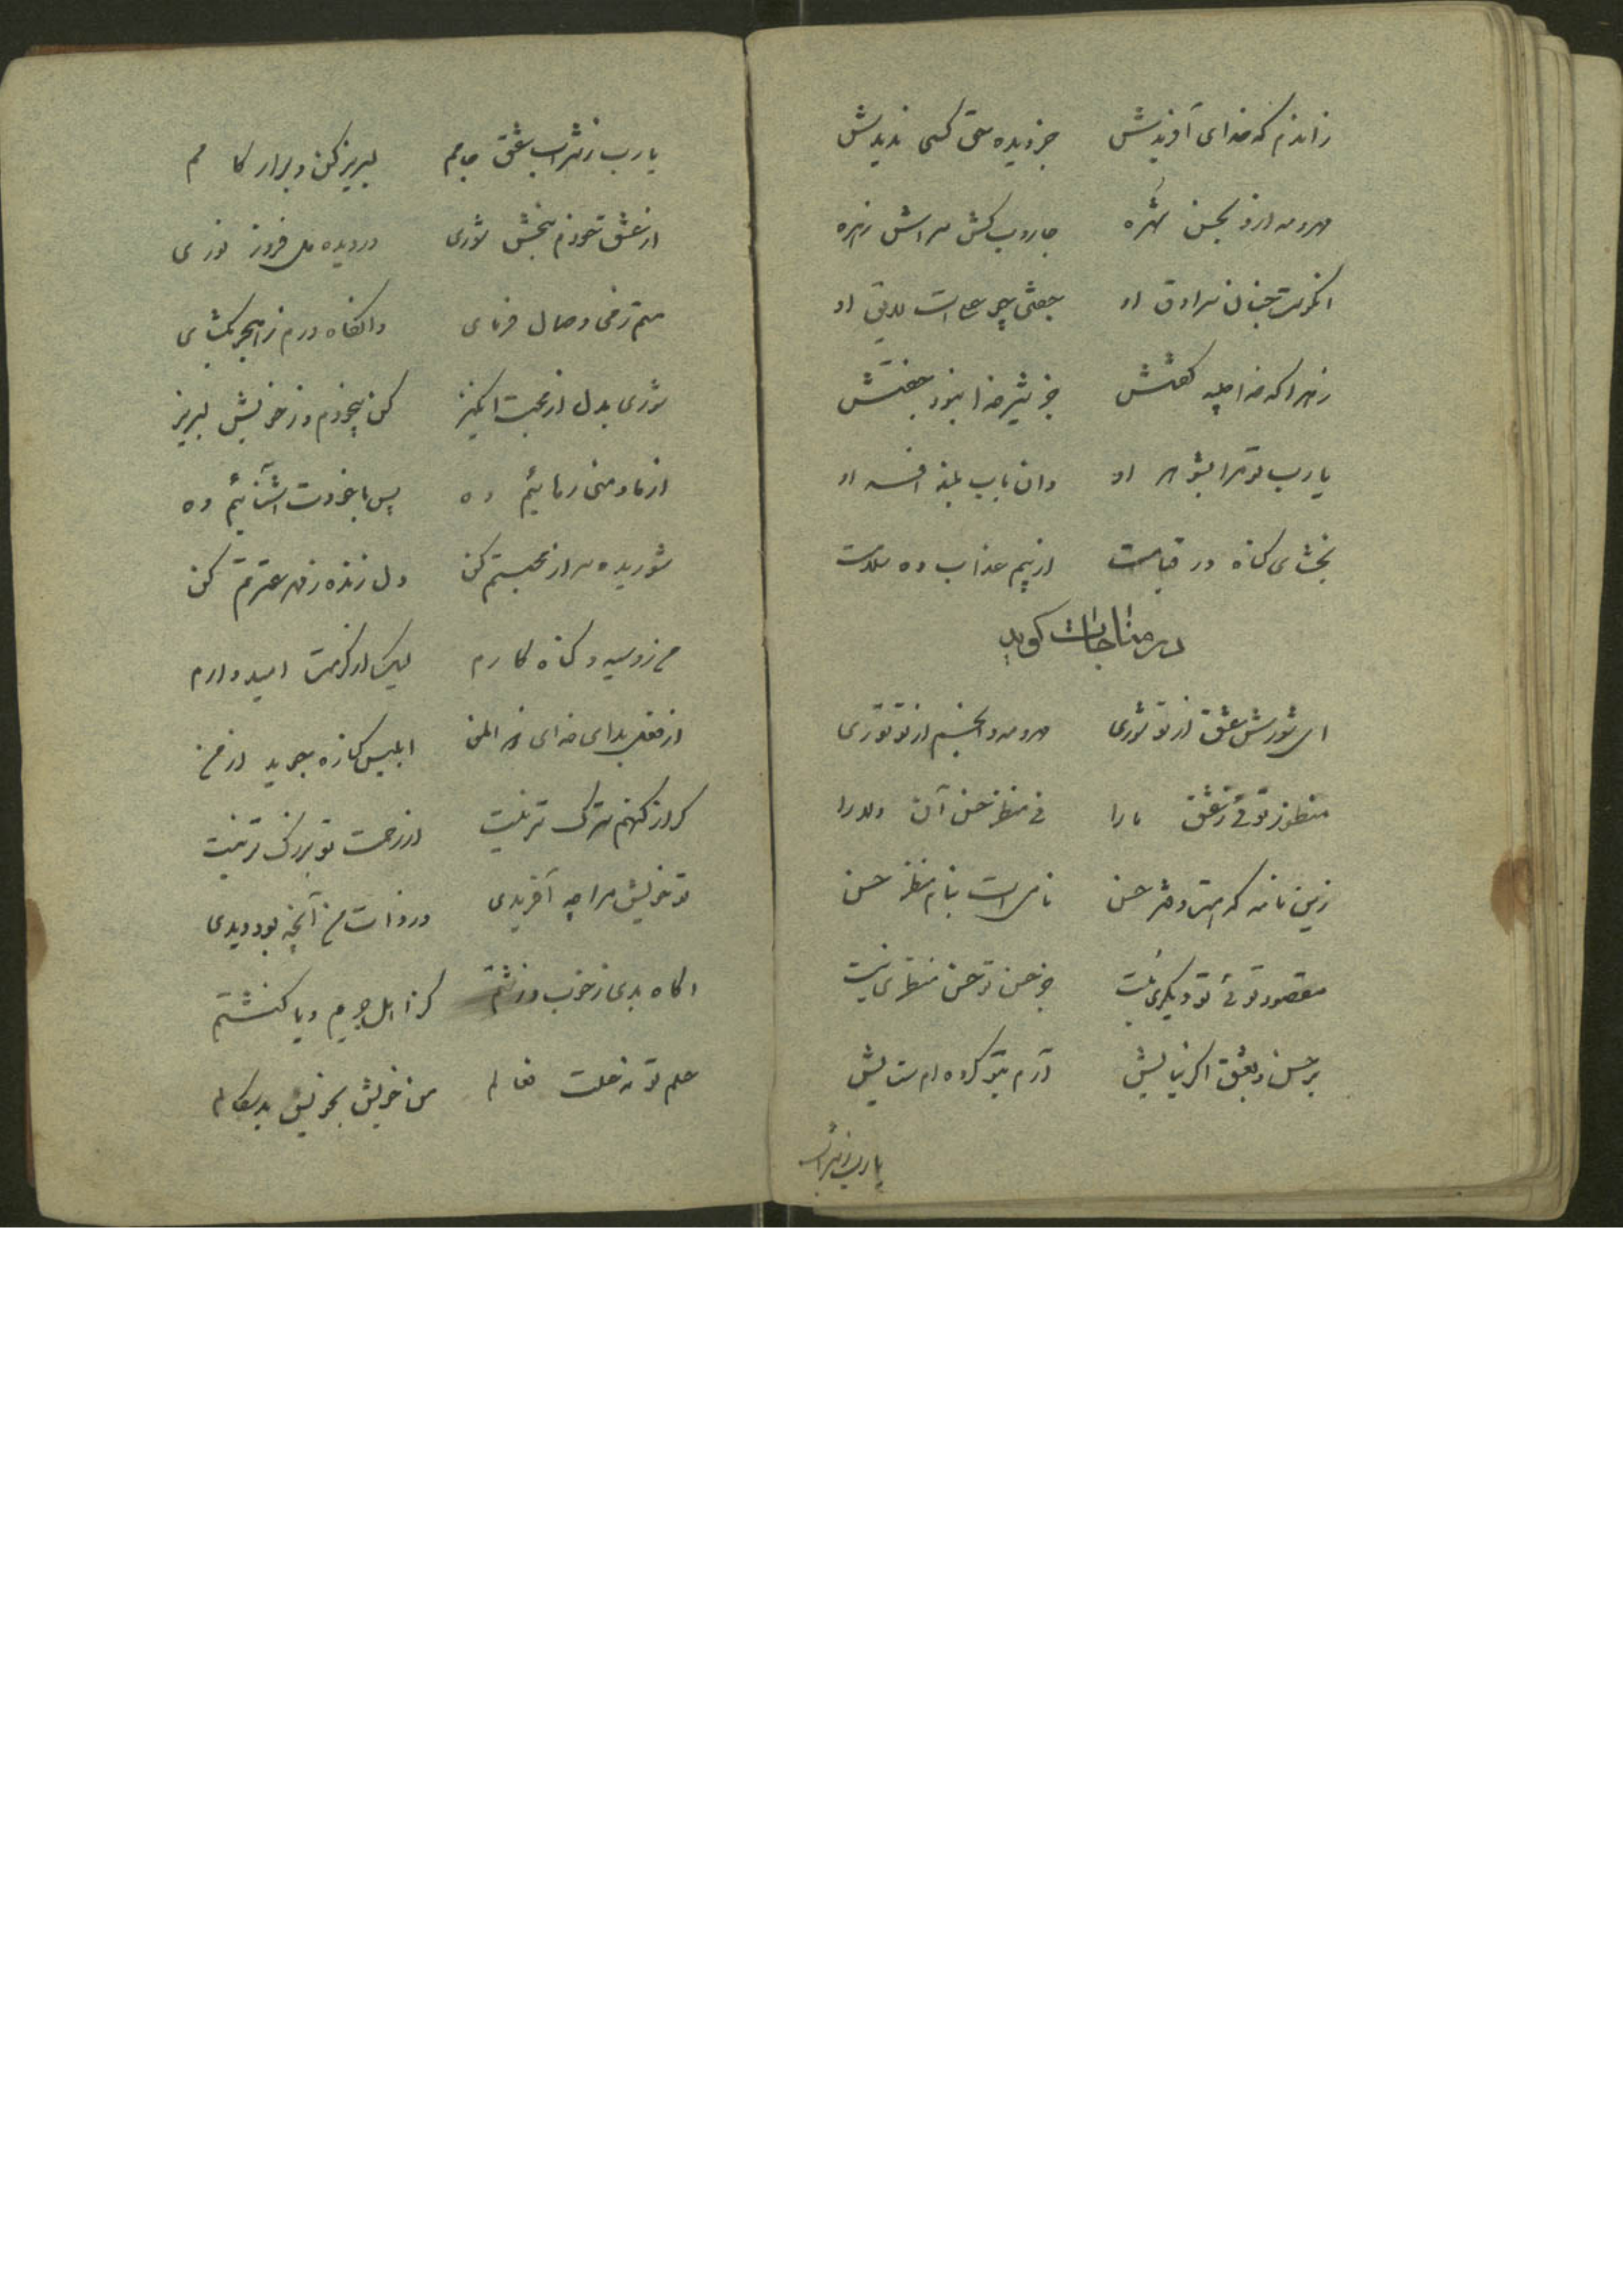 زاندم که خدای آفریدش جز دیده حق کسی ندیدش
مهر و مه ازو بحسن شهره جاروب کش سراش زهره
آنکوست چنان سرادق او جفتی چو علی است لایق او
زهرا که خدا جلیه گفتش جز شیر خدا نبود جفتش
یا رب تو مرا بشوهر او وان باب بلند افسر او
بخشای گناه در قیامت از بیم عذاب ده سلامت
در مناجات گوید
ای شورش عشق از تو شوری مهر و مه و انجم از تو نوری
منظور توئی ز عشق ما را نی منظر حسن آن دلارا
زین نامه که است دفتر حسن نامی است بنام منظر حسن
مقصود توئی تو دیگری نیست جز حسن تو حسن منظری نیست
بر حسن و بعشق اگر نیایش آرم بتو کرده ام ستایش
یا رب ز شراب
یا رب ز شراب عشق جامم لبریز کن و برار کامم
از عشق خودم ببخش شوری در دیده دل فروز نوری
ستم زمی وصال فرمای وانگاه درم ز هجر بگشای
شوری بدل از محبت انگیز کن بیخودم و ز خویش لبریز
از ما و منی رهائیم ده پس با خودت آشنائیم ده
شوریده سر از محبتم کن دل زنده ز مهر عترتم کن
من رو سیه و گناه کارم لیک از کرمت امیدوارم
از فعل بد ای خدای ذو المن ابلیس کناره جوید از من
گر از گنهم بزرگ تر نیست از رحمت تو بزرگ تر نیست
تو خویش مرا چه آفریدی در ذات من آنچه بود دیدی
آگاه بدی ز خوب و زشتم کز اهل جحیم و یا کنشتم
علم تو نه علت فعالم من خویش بخویش بد سگالم